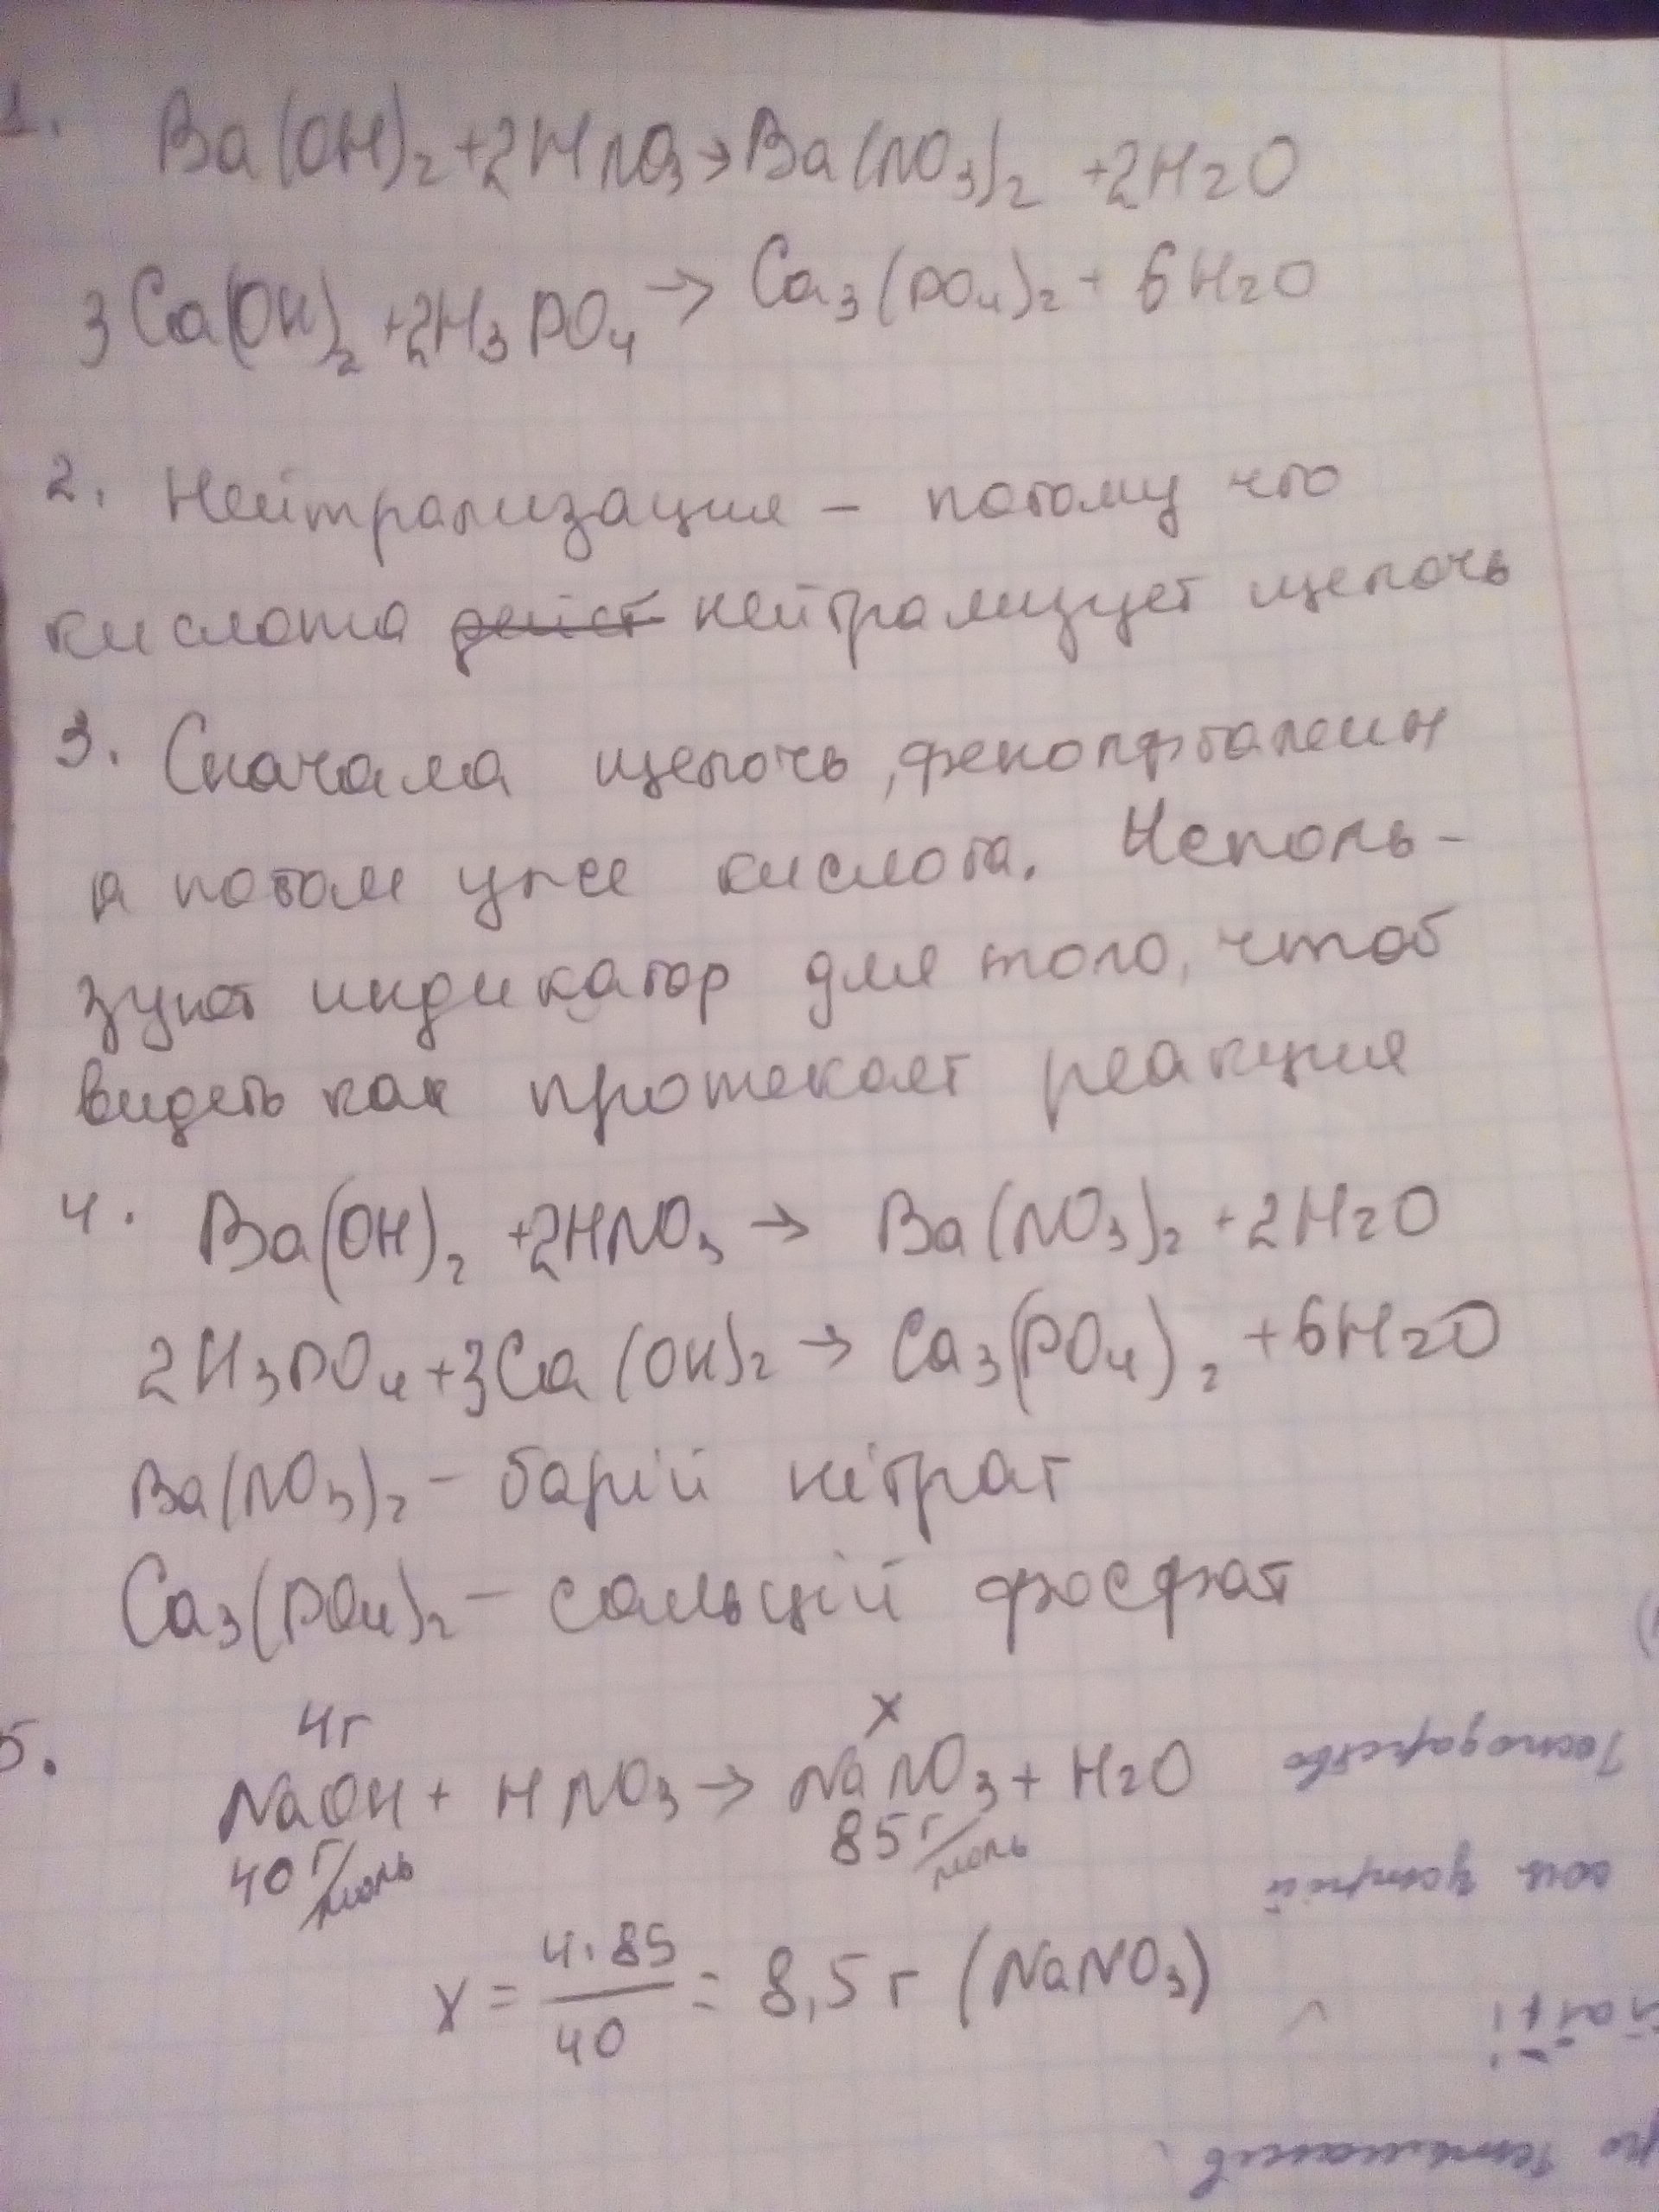 1. Ba(OH)₂ + 2HNO₃ → Ba(NO₃)₂ + 2H₂O
3Ca(OH)₂ + 2H₃PO₄ → Ca₃(PO₄)₂ + 6H₂O
2. Нейтрализация – потому что
кислота дейст нейтрализует щелочь
3. Сначала щелочь, фенолфталеин
а потом уже кислота. Исполь-
зуют индикатор для того, чтоб
видеть как протекает реакция
4. Ba(OH)₂ + 2HNO₃ → Ba(NO₃)₂ + 2H₂O
2H₃PO₄ + 3Ca(OH)₂ → Ca₃(PO₄)₂ + 6H₂O
Ba(NO₃)₂ – барій нітрат
Ca₃(PO₄)₂ – сальцій фосфат
4г x
5. NaOH + HNO₃ → NaNO₃ + H₂O
40 г/моль 85 г/моль
x = 4·85/40 = 8,5 г (NaNO₃)